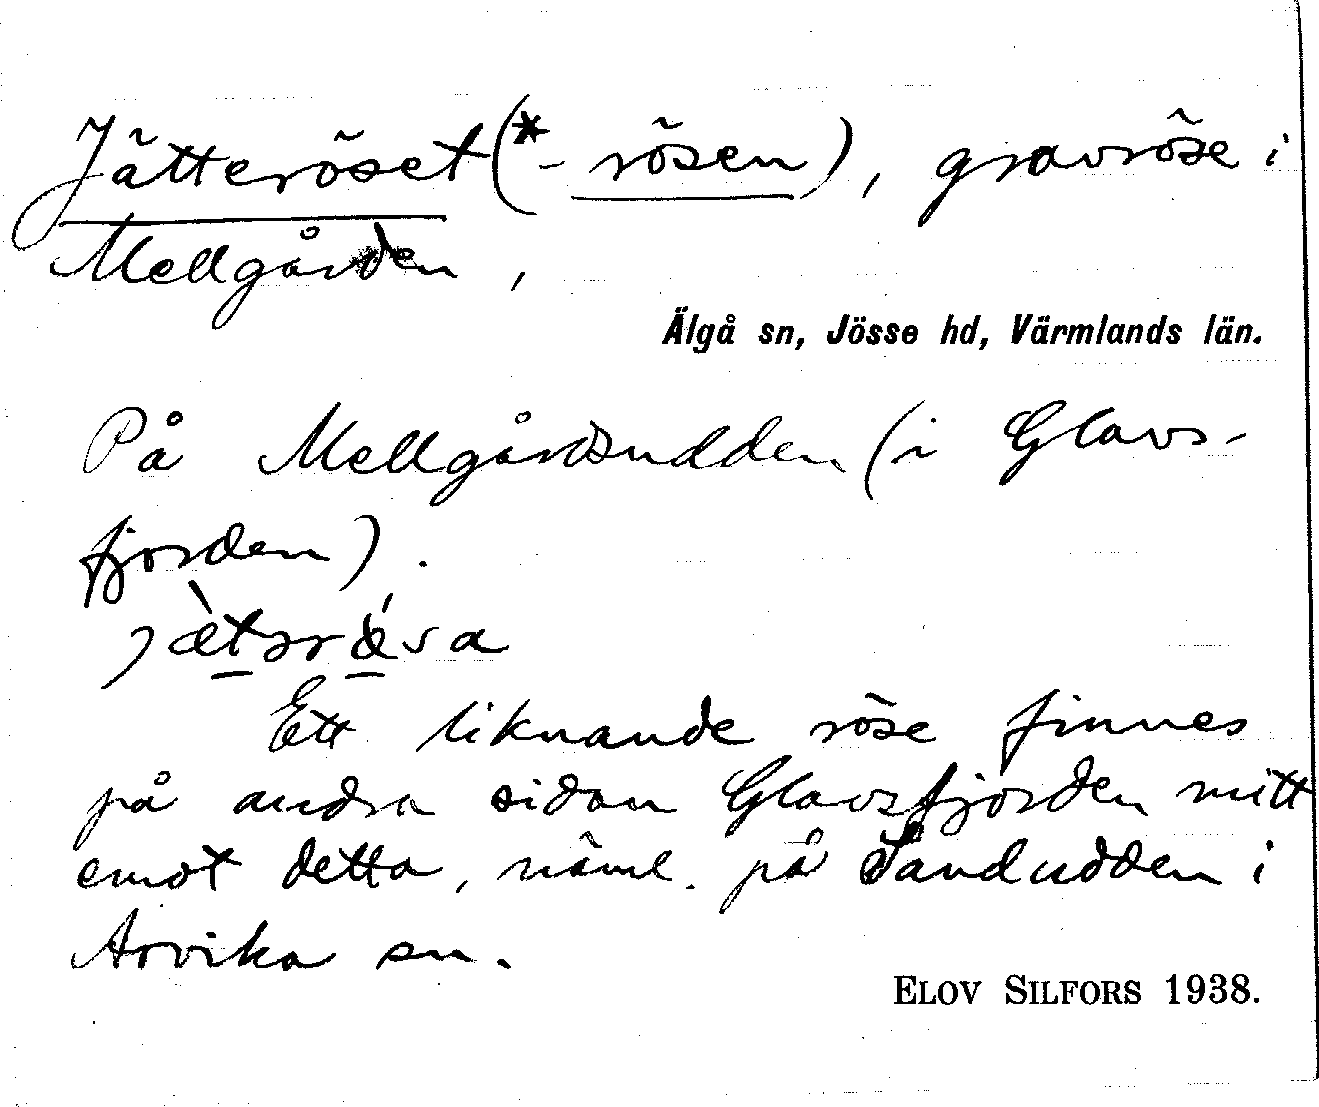 Jätteröset (*-rösen), gravröse i
Mellgården,
Älgå sn, Jösse hd, Värmlands län.
På Mellgårdsudden (i Glavs-
fjorden).
Ett liknande röse finnes
på andra sidan Glavsfjorden mitt
emot detta, näml. på Sandudden i
Arvika sn.
ELOV SILFORS 1938.